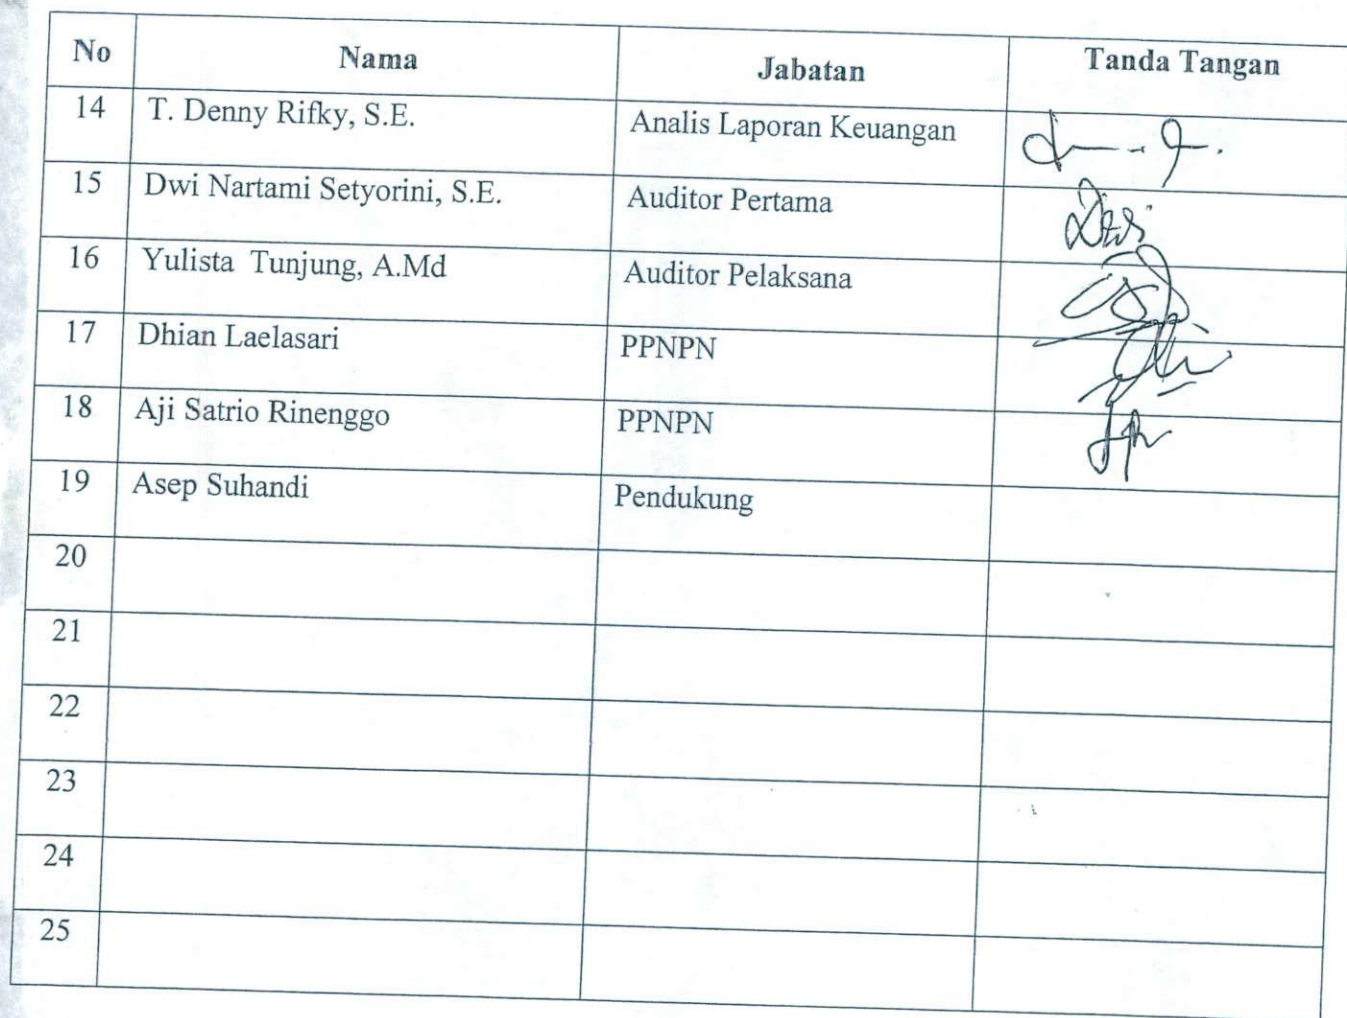 No Nama Jabatan Tanda Tangan
14 T. Denny Rifky, S.E. Analis Laporan Keuangan
15 Dwi Nartami Setyorini, S.E. Auditor Pertama Dwi
16 Yulista Tunjung, A.Md Auditor Pelaksana
17 Dhian Laelasari PPNPN
18 Aji Satrio Rinenggo PPNPN
19 Asep Suhandi Pendukung
20
21
22
23
24
25